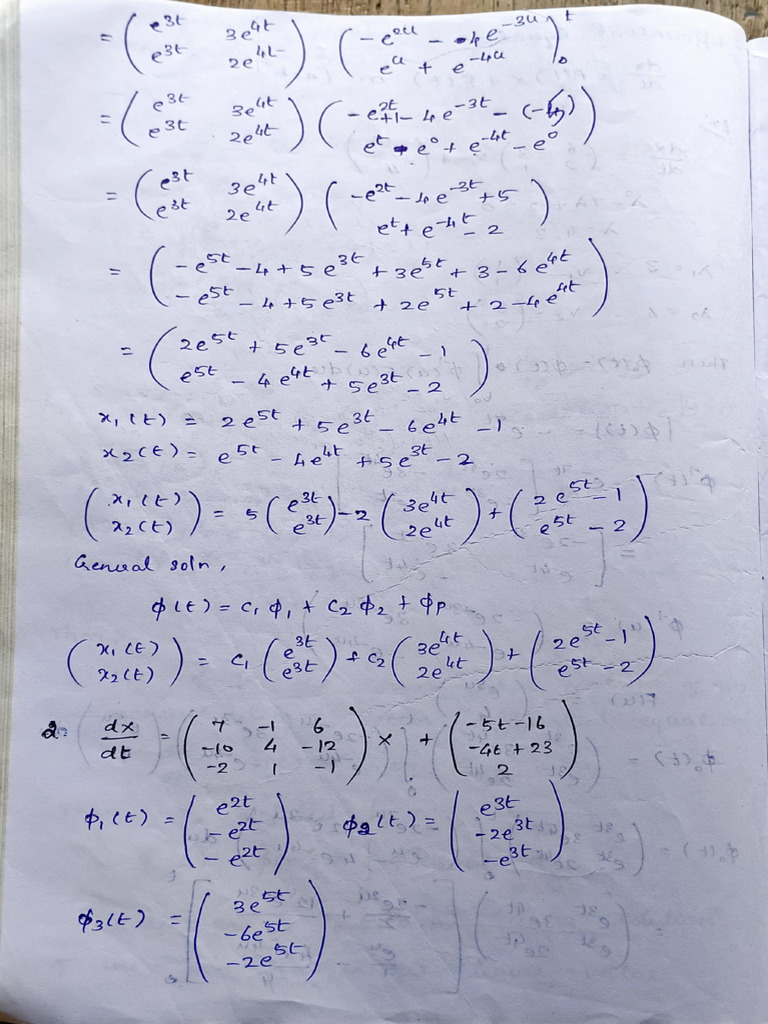 = ( e^{3t} 3e^{4t} ; e^{3t} 2e^{4t} ) ( -e^{2u} - 4e^{-3u} ; e^{u} + e^{-4u} )_0^t
= ( e^{3t} 3e^{4t} ; e^{3t} 2e^{4t} ) ( -e^{2t} +1 - 4e^{-3t} - (-4) ; e^{t} - e^{0} + e^{-4t} - e^{0} )
= ( e^{3t} 3e^{4t} ; e^{3t} 2e^{4t} ) ( -e^{2t} - 4e^{-3t} + 5 ; e^{t} + e^{-4t} - 2 )
= ( -e^{5t} - 4 + 5e^{3t} + 3e^{5t} + 3 - 6e^{4t} ; -e^{5t} - 4 + 5e^{3t} + 2e^{5t} + 2 - 4e^{4t} )
= ( 2e^{5t} + 5e^{3t} - 6e^{4t} - 1 ; e^{5t} - 4e^{4t} + 5e^{3t} - 2 )
x₁(t) = 2e^{5t} + 5e^{3t} - 6e^{4t} - 1
x₂(t) = e^{5t} - 4e^{4t} + 5e^{3t} - 2
( x₁(t) ; x₂(t) ) = 5 ( e^{3t} ; e^{3t} ) - 2 ( 3e^{4t} ; 2e^{4t} ) + ( 2e^{5t} - 1 ; e^{5t} - 2 )
General soln,
ϕ(t) = c₁ ϕ₁ + c₂ ϕ₂ + ϕp
( x₁(t) ; x₂(t) ) = c₁ ( e^{3t} ; e^{3t} ) + c₂ ( 3e^{4t} ; 2e^{4t} ) + ( 2e^{5t} - 1 ; e^{5t} - 2 )
2. dx/dt = ( 7 -1 6 ; -10 4 -12 ; -2 1 -1 ) x + ( -5t - 16 ; -4t + 23 ; 2 )
ϕ₁(t) = ( e^{2t} ; -e^{2t} ; -e^{2t} ) ϕ₂(t) = ( e^{3t} ; -2e^{3t} ; -e^{3t} )
ϕ₃(t) = ( 3e^{5t} ; -6e^{5t} ; -2e^{5t} )